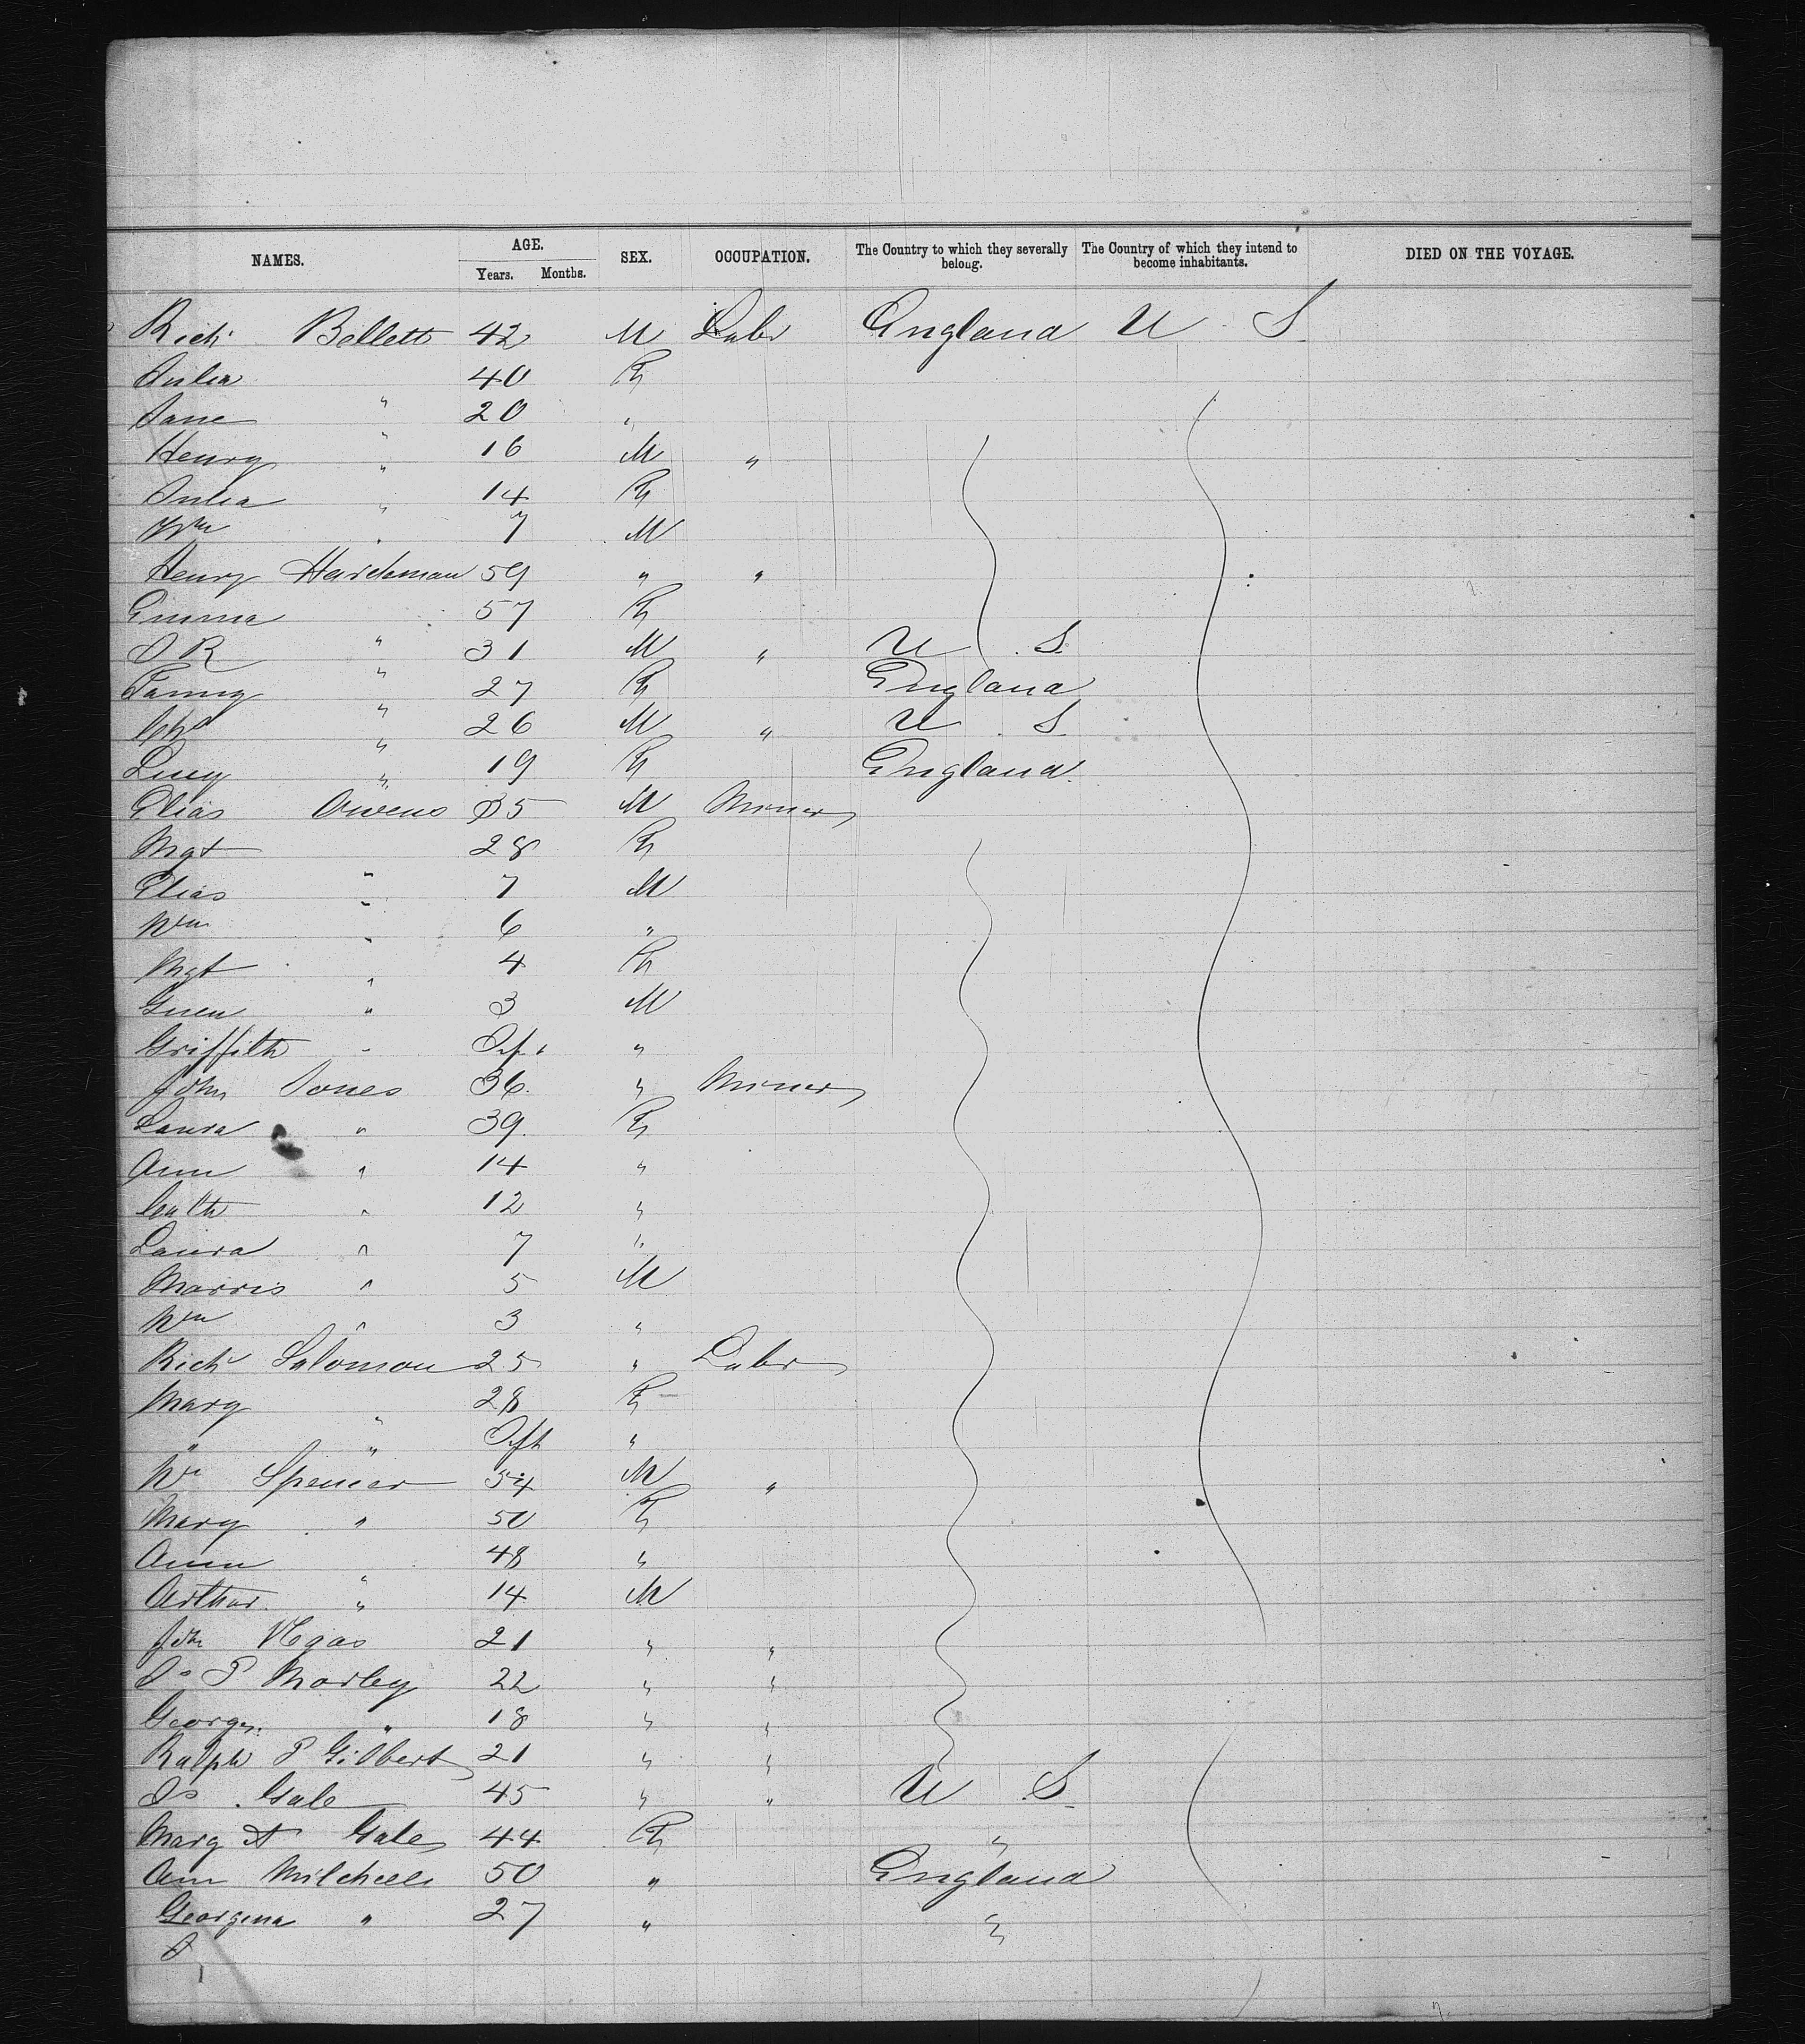 NAMES. AGE. SEX. OCCUPATION. The Country to which they severally belong. The Country of which they intend to become inhabitants. DIED ON THE VOYAGE.
Years. Months.
Richd Bellett 42 M Labr England U S
Julia 40 F
Jane " 20 "
Henry " 16 M "
Julia " 14 F
Wm " 7 M
Henry Hardeman 59 " "
Emma 57 F
J R " 31 M " U S
Fanny " 27 F England
Chs " 26 M " U S
Lucy " 19 F England
Elias Owens 35 M Miner
Mgt 28 F
Elias " 7 M
Wm " 6 "
Mgt " 4 F
Guen " 3 M
Griffith " Inft "
John Jones 36 " Miner
Laura " 39 F
Ann " 14 "
Cath " 12 "
Laura " 7 "
Morris " 5 M
Wm " 3 "
Richd Salomon 25 " Labr
Mary 28 F
" " Inft "
Wm Spencer 54 M "
Mary " 50 F
Ann 48 "
Arthur " 14 M
Jno 21 " "
Js P Morley 22 " "
George " 18 " "
Ralph P Gilbert 21 " "
Js Gale 45 " " U S
Mary A Gale 44 F "
Ann Mitchell 50 " England
Georgina " 27 " "
J